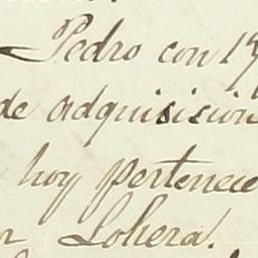 Pedro con 19
de adquisicion
hoy pertenece
Lohera.